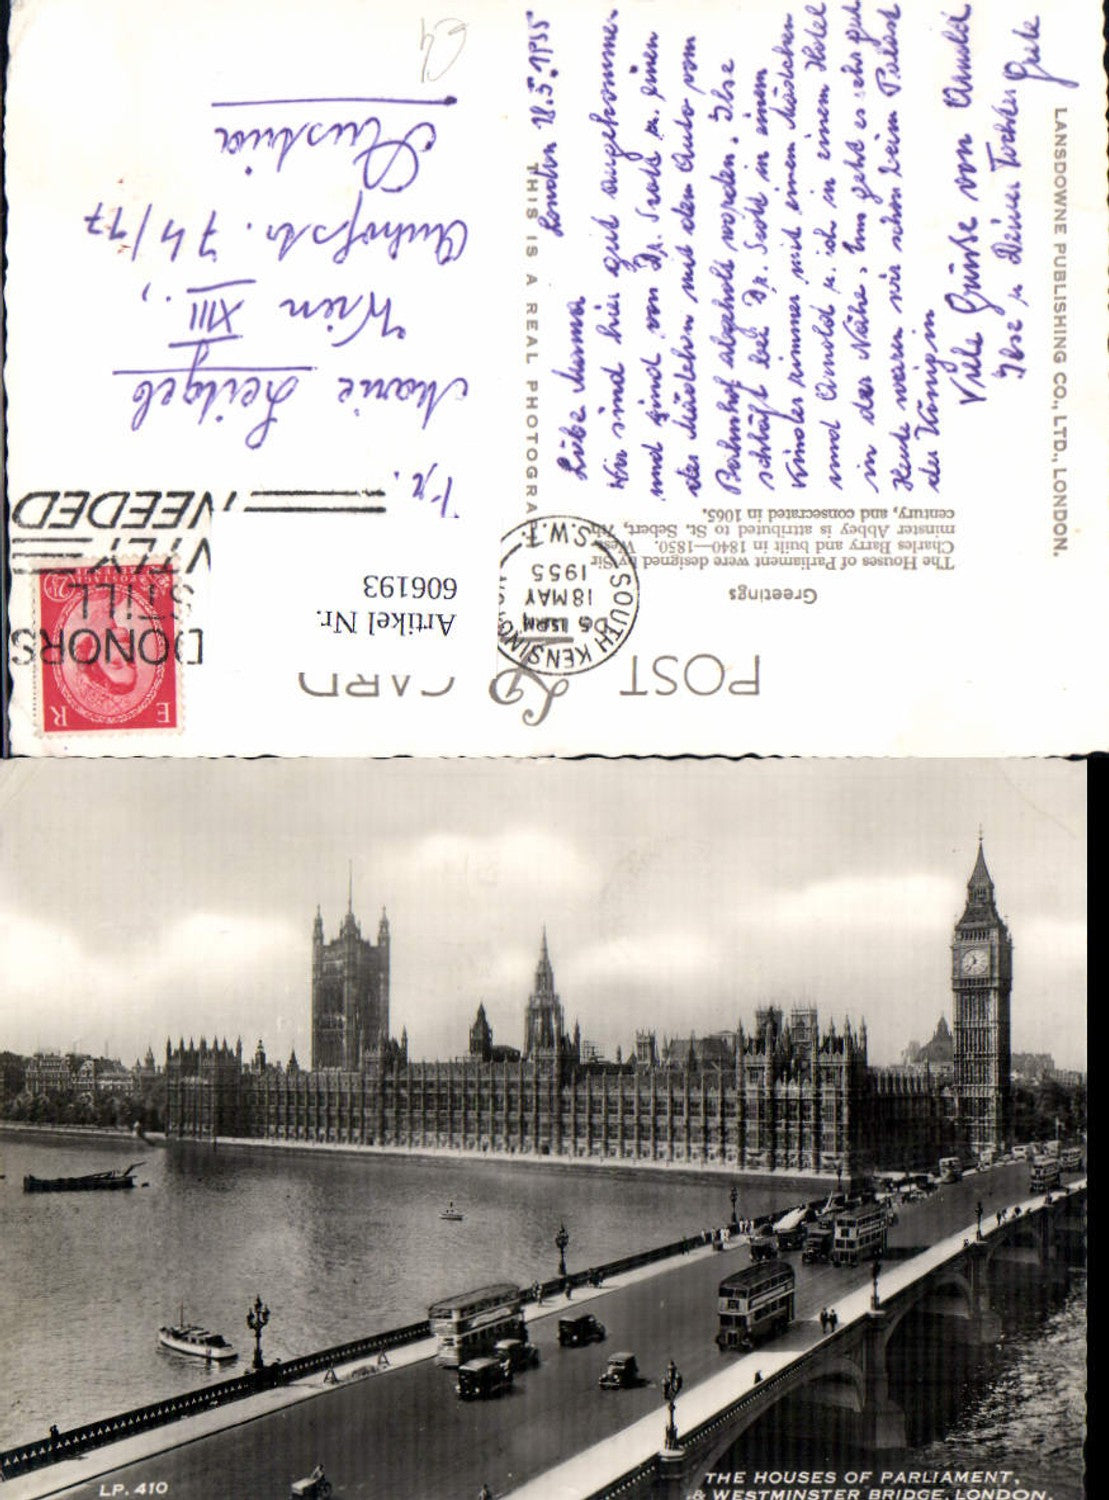 POST CARD
Greetings
The Houses of Parliament were designed by Sir
Charles Barry and built in 1840—1850. West-
minster Abbey is attributed to St. Sebert, 7th
century, and consecrated in 1065.
LANSDOWNE PUBLISHING CO., LTD., LONDON.
THIS IS A REAL PHOTOGRA
London 18.5.1955
Liebe Mama
Wir sind hier gut angekommen
und sind von Dr. Scott u. einen
der Mädchen mit dem Auto vom
Bahnhof abgeholt worden. Ilse
schläft bei Dr. Scott in einem
Kinderzimmer mit einem Mädchen
und Arnold u. ich in einem Hotel
in der Nähe. Ihm geht es sehr gut
Heute waren wir schon beim Palast
der Königin
Viele Grüsse von Arnold
Ilse u Deiner Tochter Grete
SOUTH KENSING
S.W.7.
5 15 PM
18 MAY
1955
Artikel Nr.
606193
E R
POSTAGE
2½
DONORS
STILL
NEEDED
Fr.
Marie Leitgeb
Wien XIII.,
Auhofstr. 74/17
Austria
LP. 410
THE HOUSES OF PARLIAMENT,
& WESTMINSTER BRIDGE, LONDON.